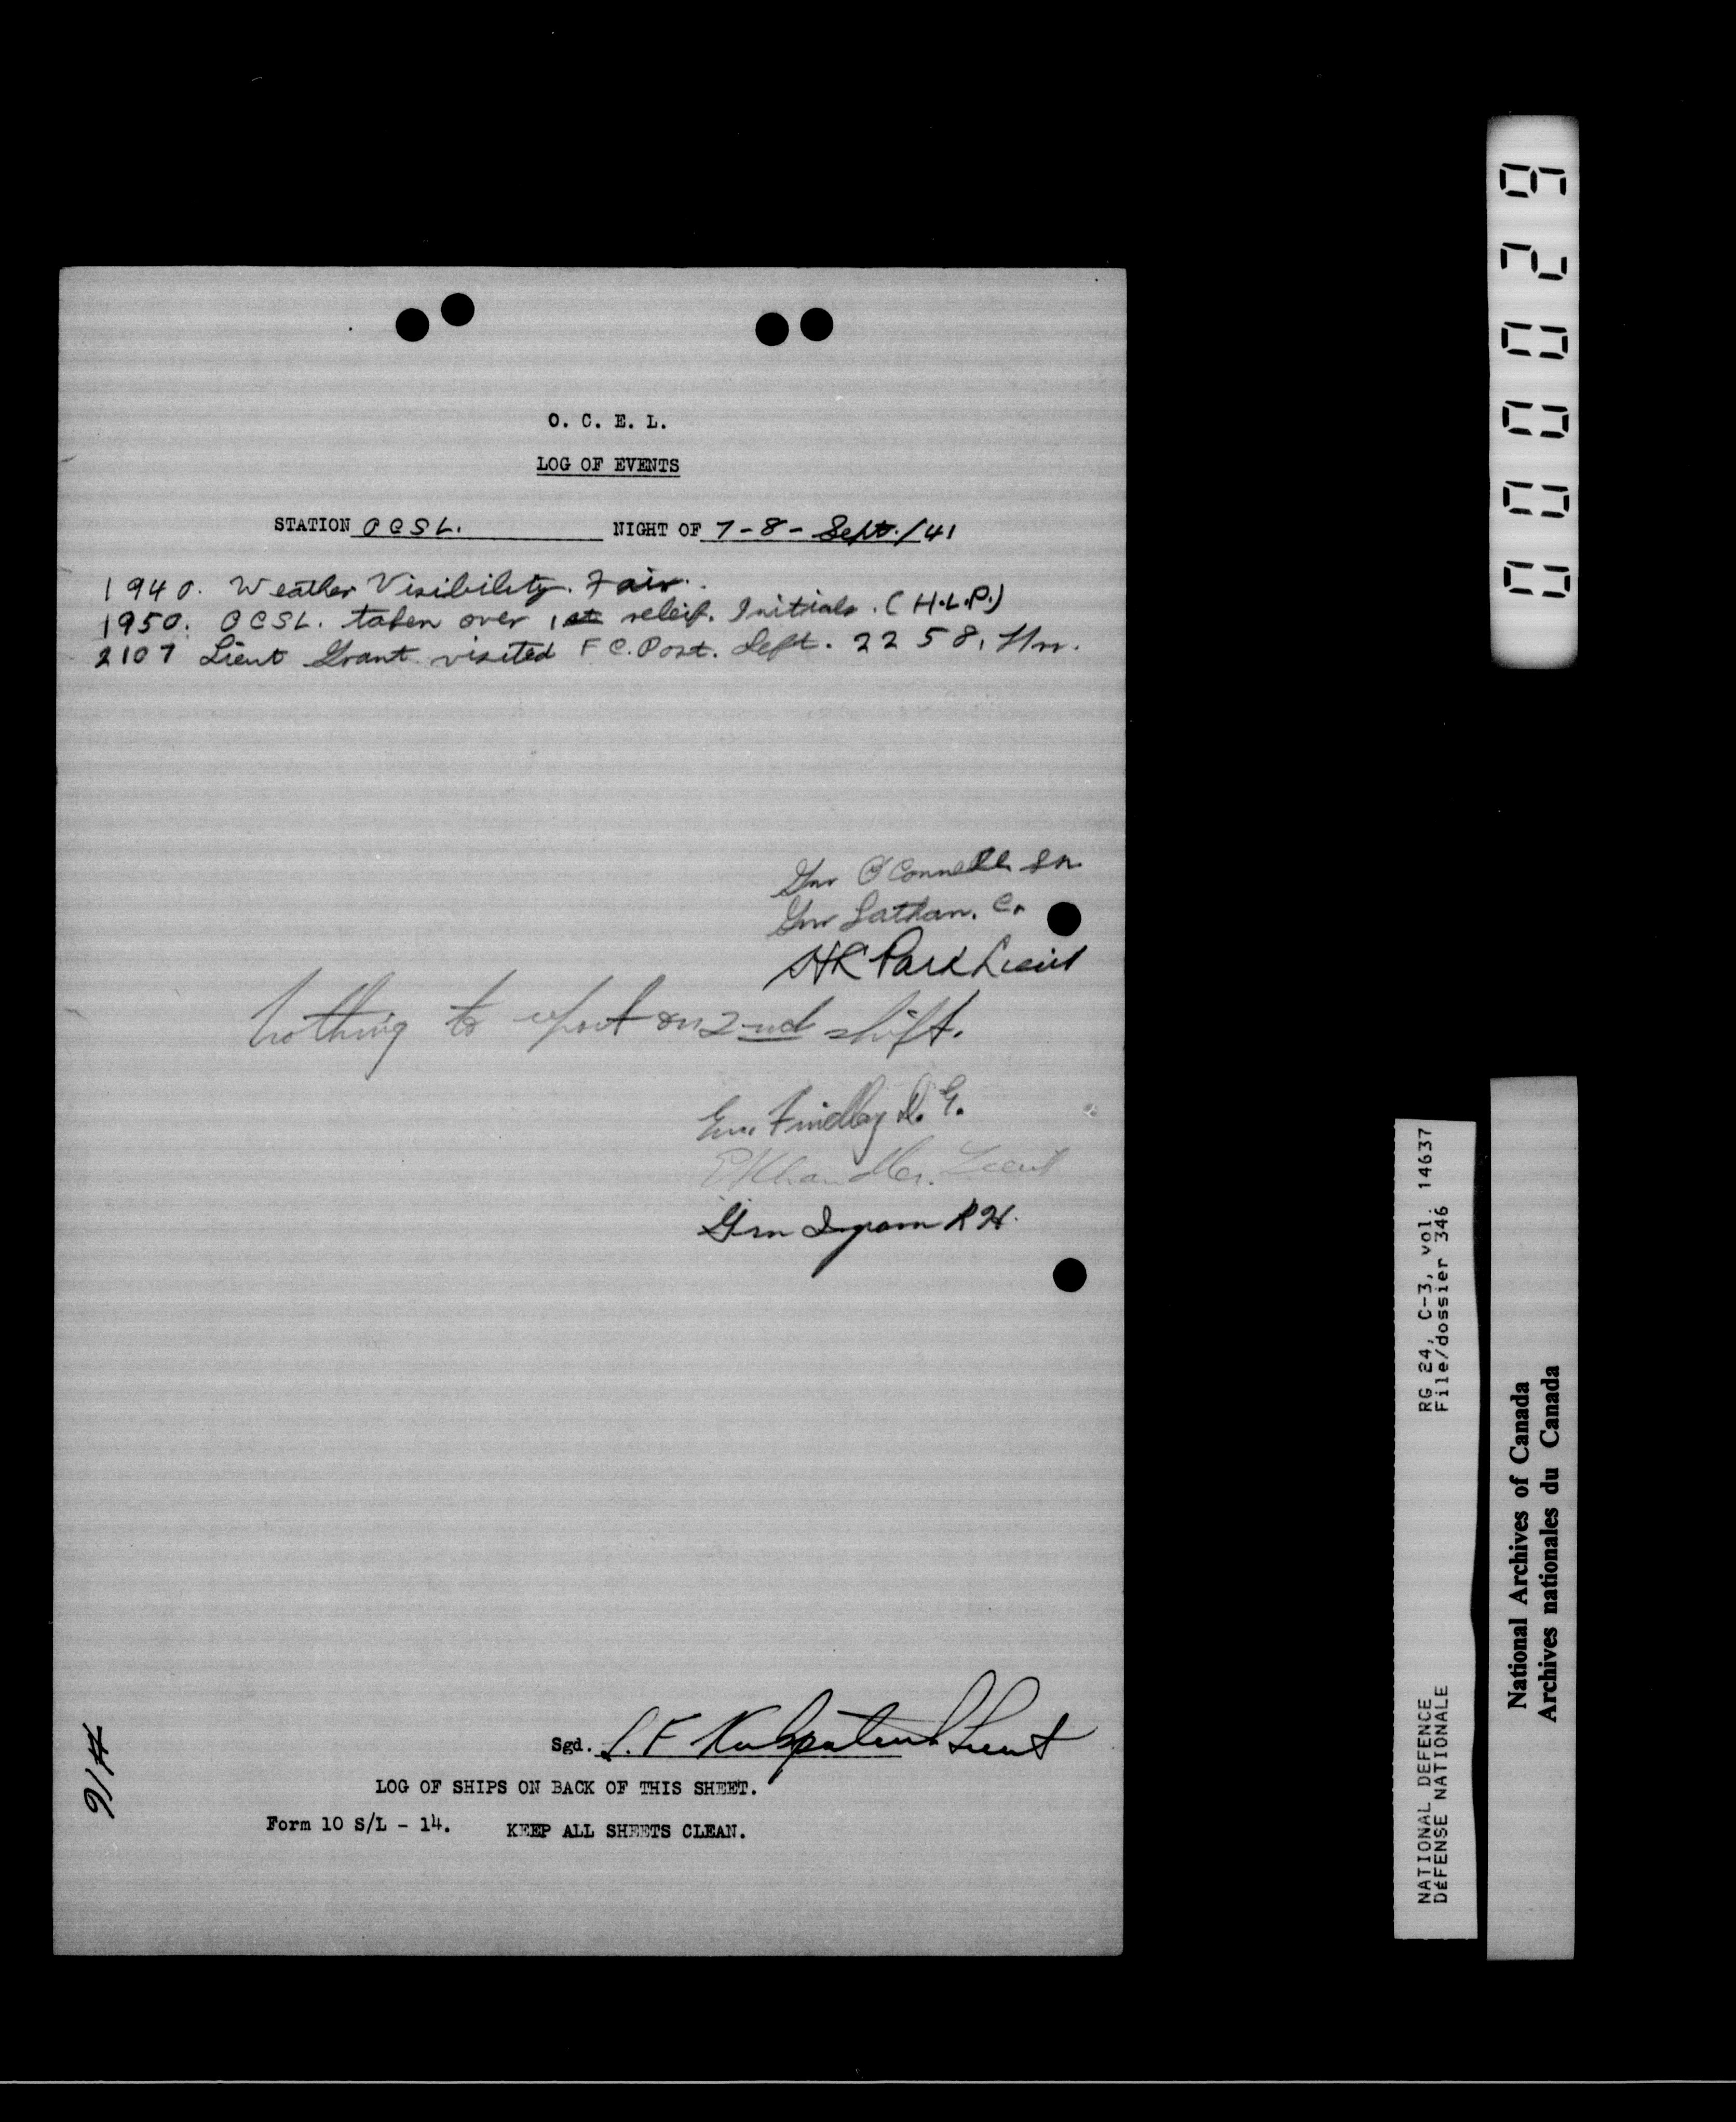 O. C. E. L.
LOG OF EVENTS
STATION O C S L. NIGHT OF 7-8- Sept./41
1940. Weather Visibility. Fair.
1950. O C S L. taken over 1st releif. Initials. (H.L.P.)
2107 Lieut Grant visited F C. Post. Left. 2258. Hrs.
Gnr O'Connell
Gnr Lathan. C.
Park Lieut
Nothing to report on 2nd shift.
Findlay D. G.
Chandler. Lieut
Gnr Ingram R H.
Sgd. Kirkpatrick Lieut
LOG OF SHIPS ON BACK OF THIS SHEET.
Form 10 S/L - 14. KEEP ALL SHEETS CLEAN.
000029
RG 24, C-3, vol. 14637
File/dossier 346
NATIONAL DEFENCE
DÉFENSE NATIONALE
National Archives of Canada
Archives nationales du Canada